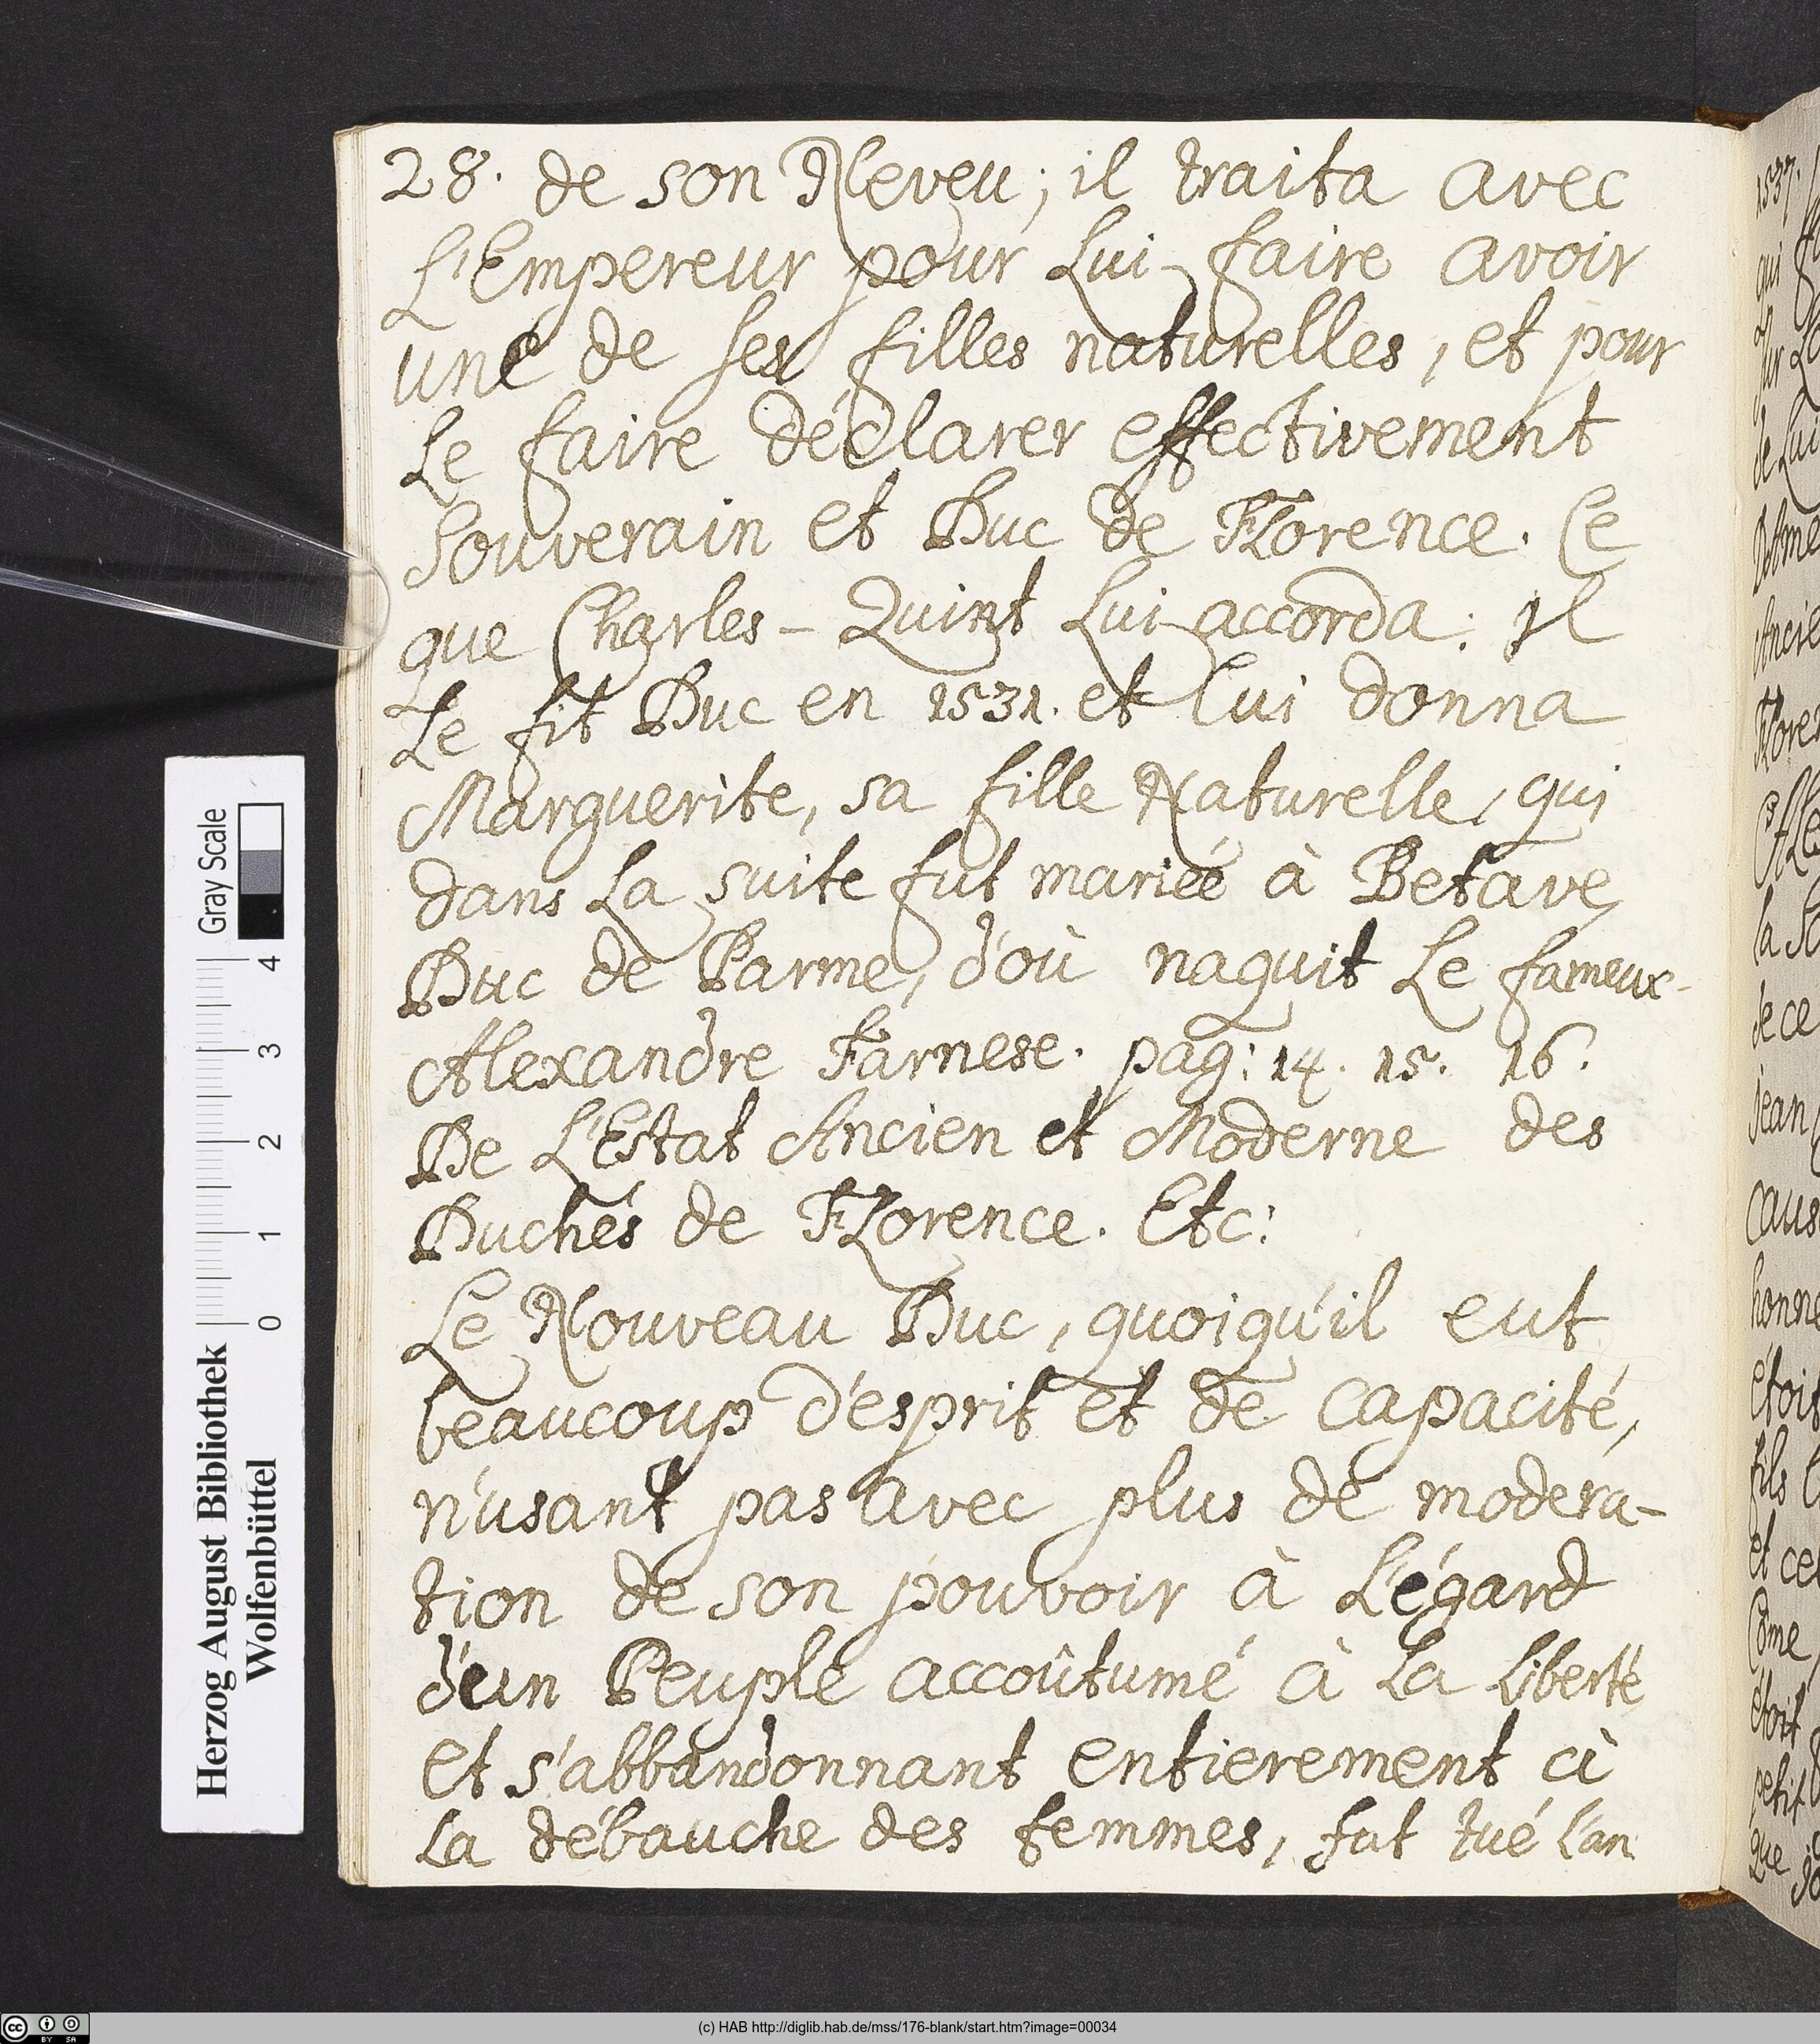 28. de son Neveu; il traita avec
L'Empereur pour Lui faire avoir
une de ses filles naturelles, et pour
Le faire déclarer effectivement
Souverain et Duc de FLorence. Ce
que Charles-Quint Lui accorda: Il
Le fit Duc en 1531. et Lui donna
Marguerite, sa fille Naturelle, qui
dans La suite fut mariée à Betave
Duc de Parme, d'où naquit Le fameux
Alexandre Farnese. pag: 14. 15. 16.
De L'Estat Ancien et Moderne des
Duchés de FLorence. Etc:
Le Nouveau Duc, quoiqu'il eut
beaucoup d'esprit et de capacité,
n'usant pas avec plus de modera-
tion de son pouvoir à L'égard
d'un Peuple accoûtumé à La Liberté
et s'abbandonnant entierement à
La débauche des femmes, fut tué L'an
1537.
qui
Gray Scale
4 3 2 1 0
Herzog August Bibliothek
Wolfenbüttel
BY SA
(c) HAB http://diglib.hab.de/mss/176-blank/start.htm?image=00034